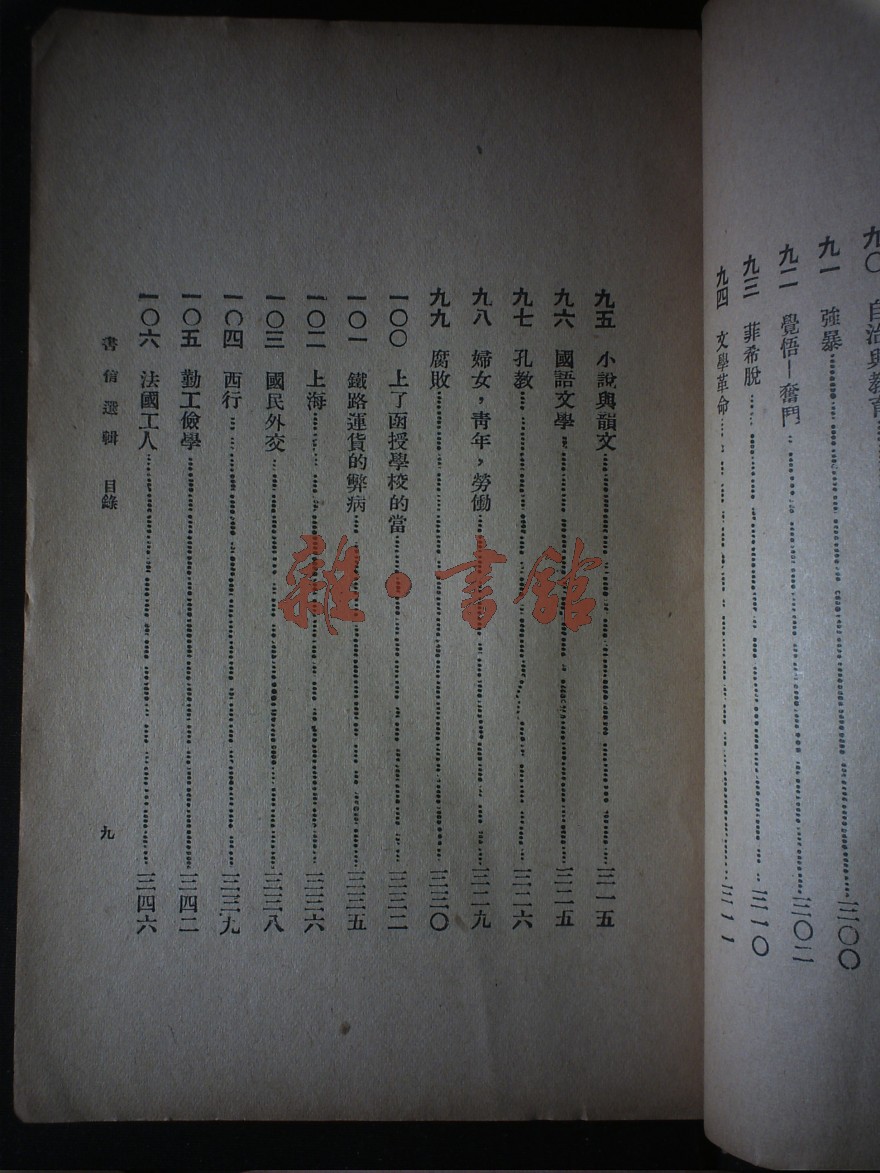 九〇 自治與教育
九一 強暴……三〇〇
九二 覺悟—奮鬥……三〇二
九三 菲希脫……三一〇
九四 文學革命……三一一
九五 小說與韻文……三一五
九六 國語文學……三二五
九七 孔教……三二六
九八 婦女，青年，勞働……三二九
九九 腐敗……三三〇
一〇〇 上了函授學校的當……三三二
一〇一 鐵路運貨的弊病……三三五
一〇二 上海……三三六
一〇三 國民外交……三三八
一〇四 西行……三三九
一〇五 勤工儉學……三四二
一〇六 法國工人……三四六
書信選輯 目錄 九
雜·書館